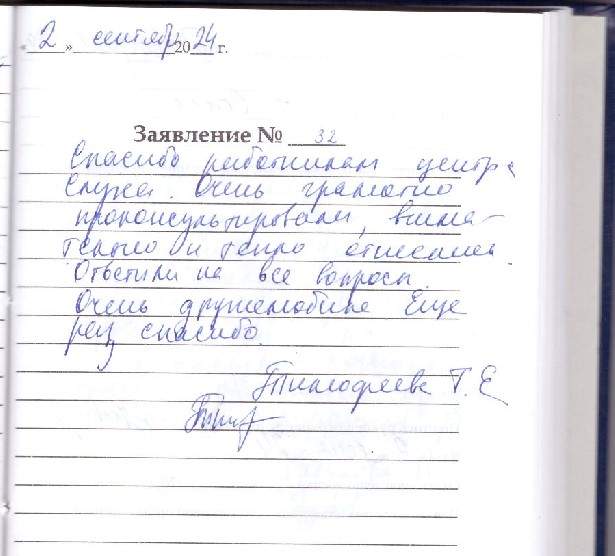 « 2 » сентябрь 2024 г.
Заявление № 32
Спасибо работникам центра
слуха. Очень грамотно
проконсультировали, внима-
тельно и тепло отнеслись.
Ответили на все вопросы.
Очень дружелюбные. Еще
раз спасибо.
Тимофеева Т. Е